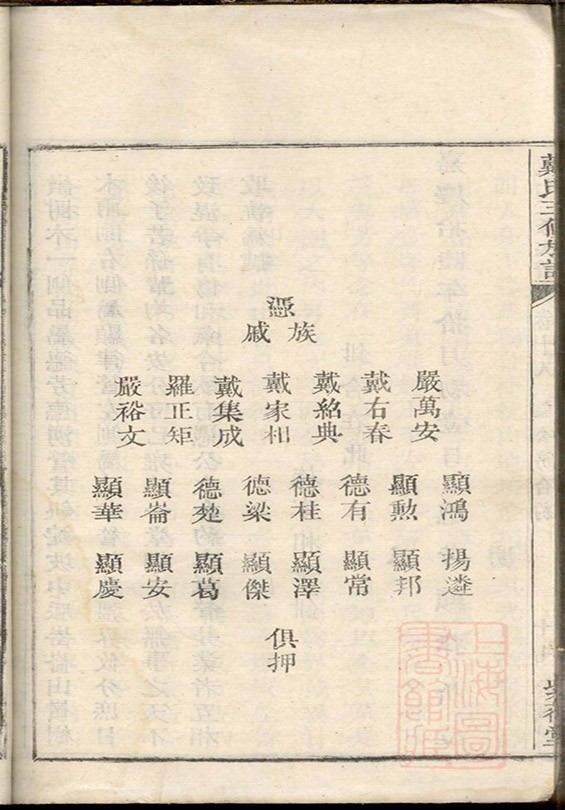 戴氏三修族譜
憑
族
戚
嚴萬安
戴右春
戴紹典
戴家相
戴集成
羅正矩
嚴裕文
顯鴻 揚遴
顯勲 顯邦
德有 顯常
德桂 顯澤
德梁 顯傑
德楚 顯葛
顯崙 顯安
顯華 顯慶
俱押
上海圖書館藏